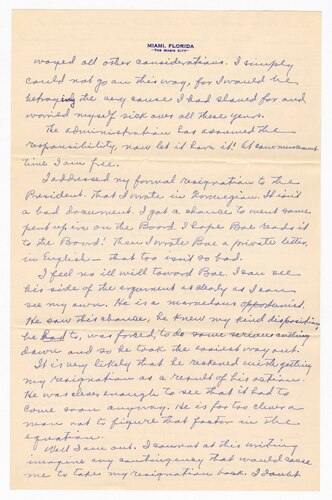 MIAMI, FLORIDA
"THE MAGIC CITY"
wayed all other considerations. I simply
could not go on this way, for I would be
betraying the very cause I had slaved for and
worried myself sick over all these years.
The administration has assumed the
responsibility, now let it have it! At commencement
time I am free.
I addressed my formal resignation to the
President. That I wrote in Norwegian. It isn't
a bad document. I got a chance to vent some
pent up ire on the Board. I hope Boe reads it
to the Board! Then I wrote Boe a private letter,
in English – that too isn't so bad.
I feel no ill will toward Boe. I can see
his side of the argument as clearly as I can
see my own. He is a marvelous opportunist.
He saw this chance, he knew my kind disposition,
he had to, was forced, to do some serious cutting
down and so he took the easiest way out.
It is very likely that he reckoned with getting
my resignation as a result of his action.
He was clever enough to see that it had to
come soon anyway. He is far too clever a
man not to figure that factor in the
equation.
Well I am out. I cannot at this writing
imagine any contingency that would cause
me to take my resignation back. I doubt